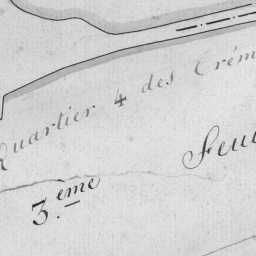 Quartier 4 des Crém
Feui
3.ème